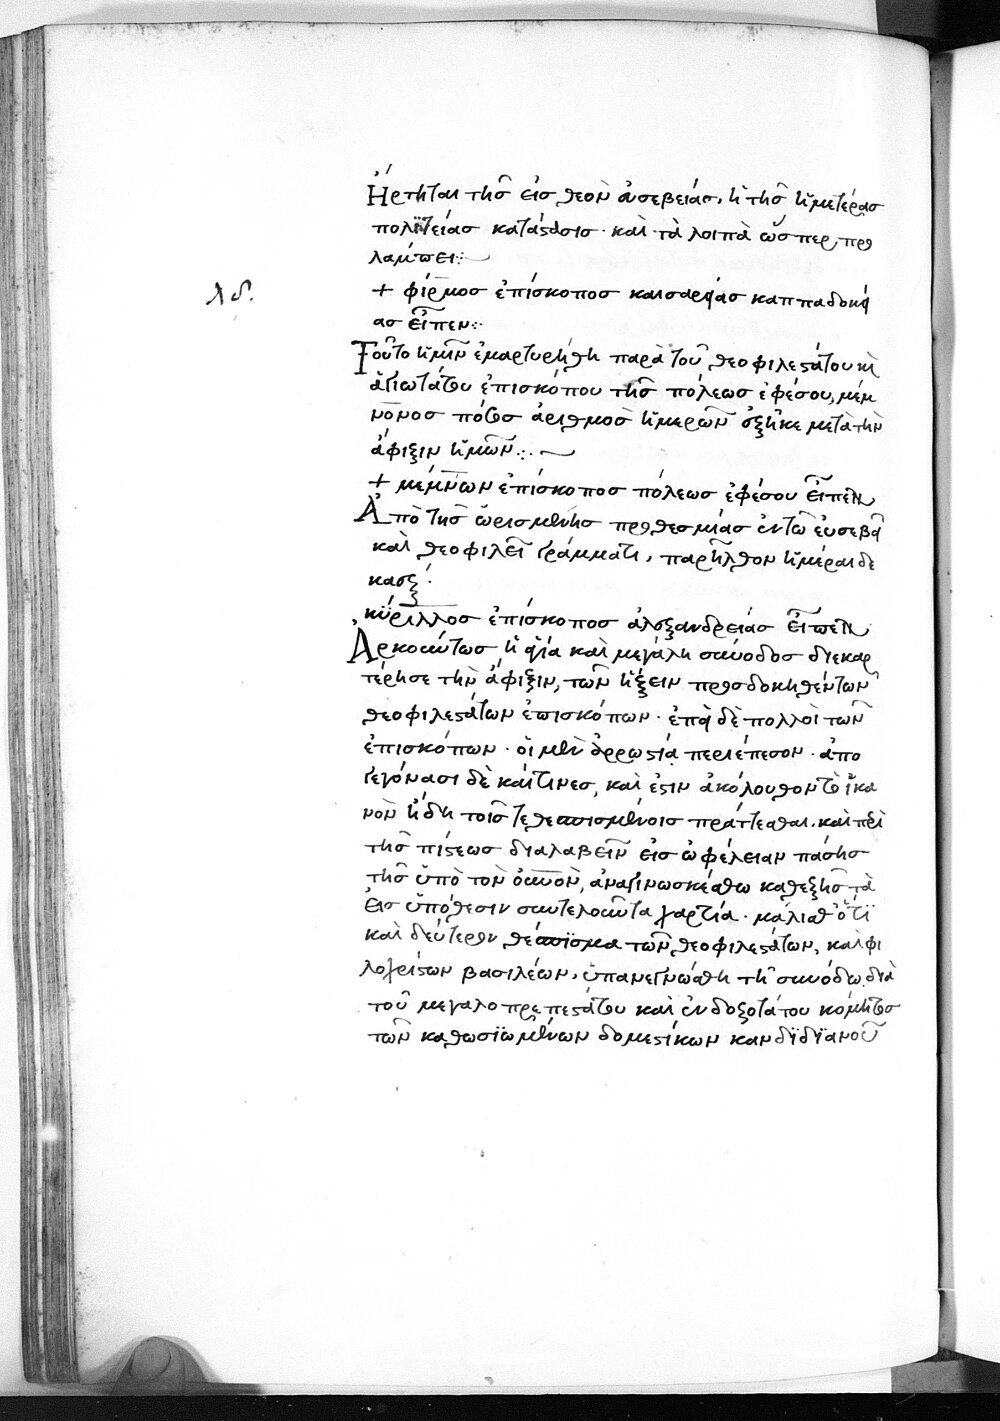 Ἤρτηται τῆς εἰς θεὸν εὐσεβείας, ἡ τῆς ἡμετέρας
πολϊτείας κατάστασις · καὶ τὰ λοιπὰ ὥσπερ, προ
λάμπει:
λδ.
+ φίρμος ἐπίσκοπος καισαρείας καππαδοκί
ας εἶπεν:
Τοῦτο ἡμῖν ἐμαρτυρήθη παρὰ τοῦ θεοφιλεστάτου καὶ
ἁγιωτάτου ἐπισκόπου τῆς πόλεως ἐφέσου, μέμ
νονος πόσος ἀριθμὸς ἡμερῶν ἐξῆκε μετὰ τὴν
ἄφιξιν ἡμῶν:
+ μέμνων ἐπίσκοπος πόλεως ἐφέσου εἶπεν
Ἀπὸ τῆς ὡρισμένης προθεσμίας ἐν τῶ εὐσεβεῖ
καὶ θεοφιλεῖ γράμματι, παρῆλθον ἡμέραι δε
καὲξ.
κύριλλος ἐπίσκοπος ἀλεξανδρείας εἶπεν
Ἀρκούντως ἡ ἁγία καὶ μεγάλη σύνοδος διεκαρ
τέρησε τὴν ἄφιξιν, τῶν ἥξειν προσδοκηθέντων
θεοφιλεστάτων ἐπισκόπων · ἐπεὶ δὲ πολλοὶ τῶν
ἐπισκόπων · οἱ μὲν ἀρρωστία περιέπεσον · ἀπο
γεγόνασι δὲ καί τινες, καὶ ἐστιν ἀκόλουθον τὸ ἱκα
νὸν ἤδη τοῖς τεθεσπισμένοις πράττεσθαι. καὶ περὶ
τῆς πίστεως διαλαβεῖν εἰς ὠφέλειαν πάσης
τῆς ὑπὸ τὸν οὐρανὸν, ἀναγινωσκέσθω καθεξῆς τὰ
εἰς ὑπόθεσιν συντελοῦντα χαρτία · μάλισθ' ὅτι
καὶ δεύτερον θέσπισμα τῶν θεοφιλεστάτων, καὶ φι
λοχρίστων βασιλέων, ὑπανεγνώσθη τῆ συνόδω, διὰ
τοῦ μεγαλοπρεπεστάτου καὶ ἐνδοξοτάτου κόμητος
τῶν καθωσιωμένων δομεστίκων κανδϊδϊανοῦ